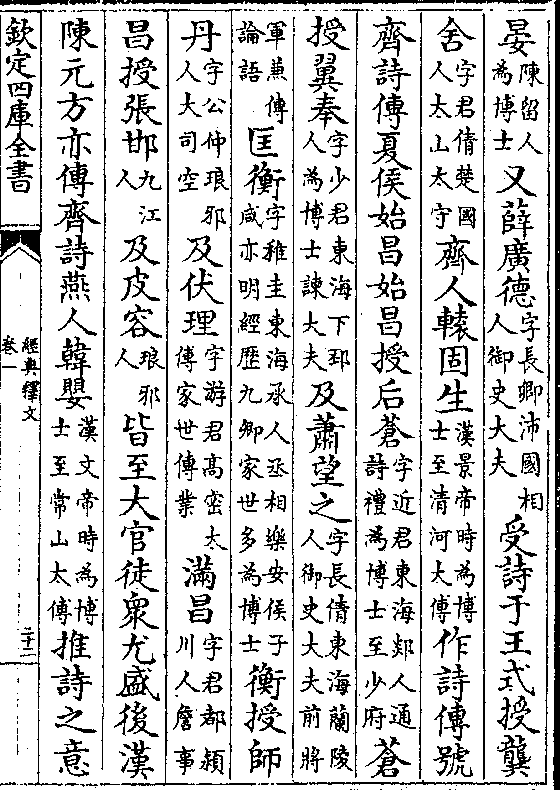 晏陳留人為博士又薛廣德字長卿沛國相人御史大夫受詩于王式授龔
舍字君倩楚國人太山太守齊人轅固生漢景帝時為博士至清河大傅作詩傳號
齊詩傳夏侯始昌始昌授后蒼字近君東海郯人通詩禮為博士至少府蒼
授翼奉字少君東海下邳人為博士諫大夫及蕭望之字長倩東海蘭陵人御史大夫前將
軍兼傳論語匡衡字稚圭東海承人丞相樂安侯子咸亦明經歷九卿家世多為博士衡授師
丹字公仲琅邪人大司空及伏理字游君高密太傅家世傳業滿昌字君都潁川人詹事
昌授張邯九江人及皮容琅邪人皆至大官徒衆尤盛後漢
陳元方亦傳齊詩燕人韓嬰漢文帝時為博士至常山太傅推詩之意
欽定四庫全書
經典釋文
卷一
二十二